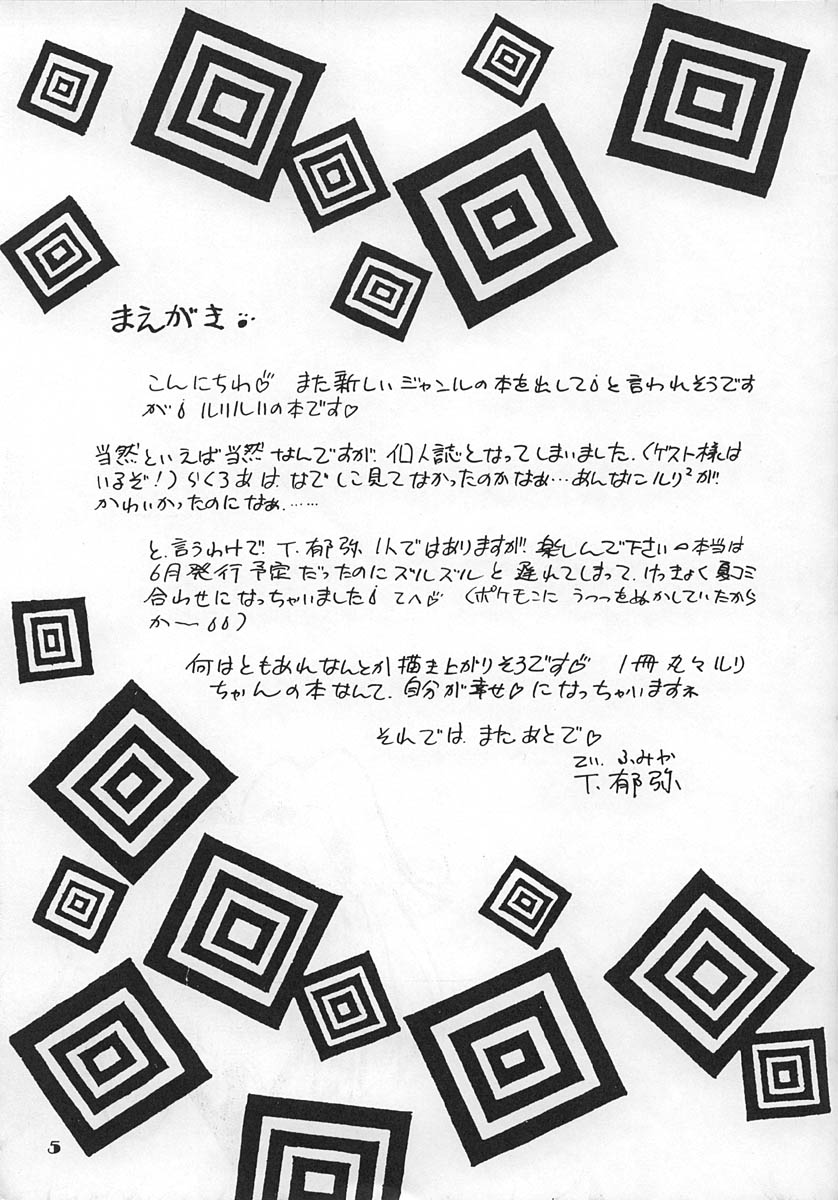 まえがき
こんにちわ♡ また新しいジャンルの本を出して！と言われそうです
が！ルリルリの本です♡
当然といえば当然なんですが、個人誌となってしまいました。（ゲスト様は
いるぞ！）らくろあは、なでしこ見てなかったのかなぁ…あんなにルリ²が
かわいかったのになぁ……
と、言うわけで、T.郁弥 1人ではありますが、楽しんで下さい 本当は
6月発行予定だったのにズルズルと遅れてしまって、けっきょく夏コミ
合わせになっちゃいました！てへ♡（ポケモンにうつつをぬかしていたから
か〜!!）
何はともあれなんとか描き上がりそうです♡ 1冊丸々ルリ
ちゃんの本なんて、自分が幸せ♡になっちゃいますネ
それでは、またあとで♡
てぃ. ふみや
T.郁弥
5